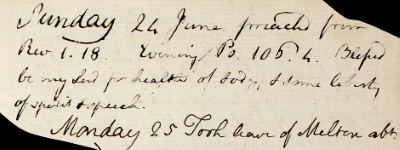 Sunday 24 June preached from
Rev 1. 18. Evening Ps. 106. 4. Blessed
be my Lord for health of body, & some liberty
of spirit & speech.
Monday 25 Took leave of Melton abt.